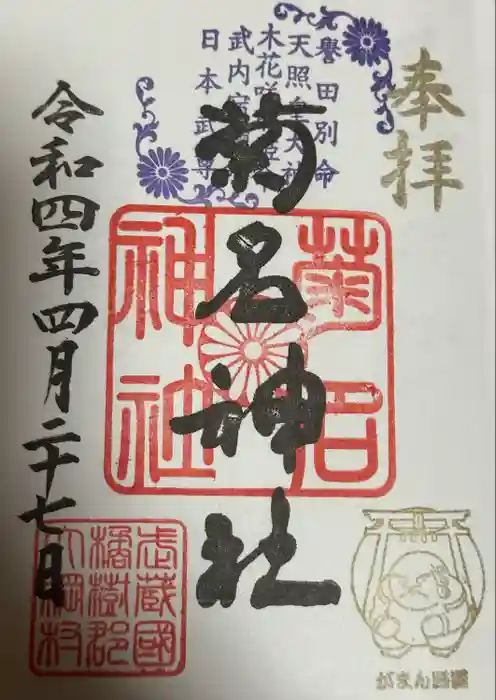 奉拝
譽田別命
天照皇大神
木花咲
武内宿
日本武尊
菊名神社
菊名
神社
令和四年四月二十七日
武蔵國
橘樹郡
大綱村
がまん